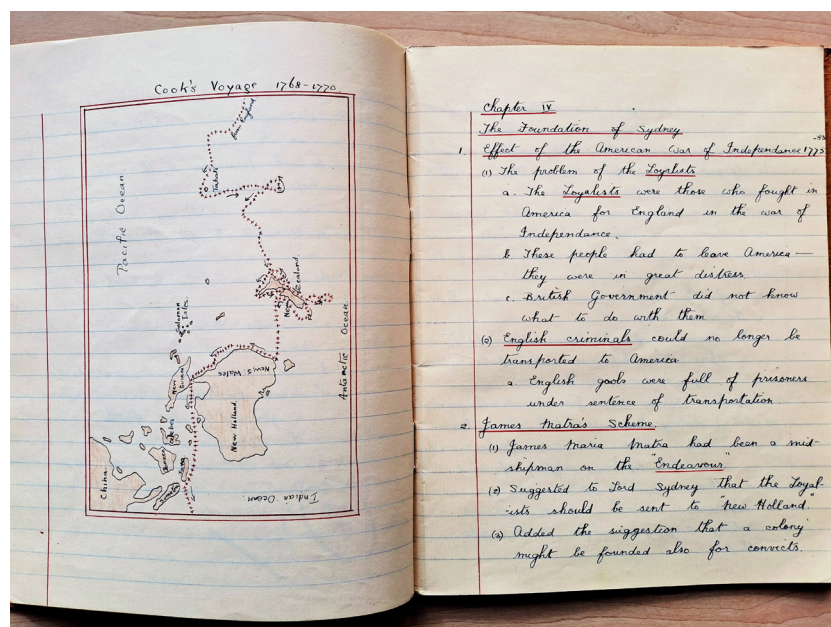 Cook's Voyage 1768-1770
from England
Tahiti
Pacific Ocean
New Zealand
Solomon
Isles
Antarctic Ocean
New S Wales
New
Guinea
New Holland
Celebes
Borneo
Java
Sumatra
China
Indian Ocean
Chapter IV
The Foundation of Sydney
-83
1. Effect of the American War of Independance 1775
(1) The problem of the Loyalists
a. The Loyalists were those who fought in
America for England in the war of
Independance.
b. These people had to leave America—
they were in great distress.
c. British Government did not know
what to do with them
(2) English criminals could no longer be
transported to America
a. English goals were full of prisoners
under sentence of transportation
2. James Matra's Scheme.
(1) James Maria Matra had been a mid-
shipman on the "Endeavour."
(2) Suggested to Lord Sydney that the Loyal-
ists should be sent to "New Holland."
(3) Added the suggestion that a colony
might be founded also for convicts.